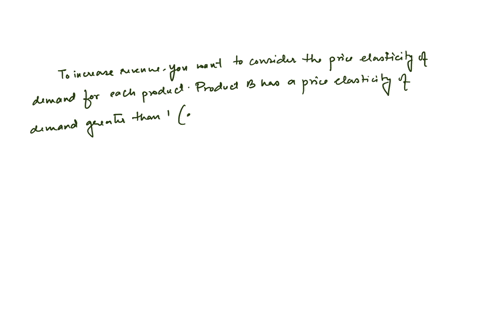 To increase revenue. you want to consider the price elasticity of
demand for each product. Product B has a price elasticity of
demand greater than 1 (.